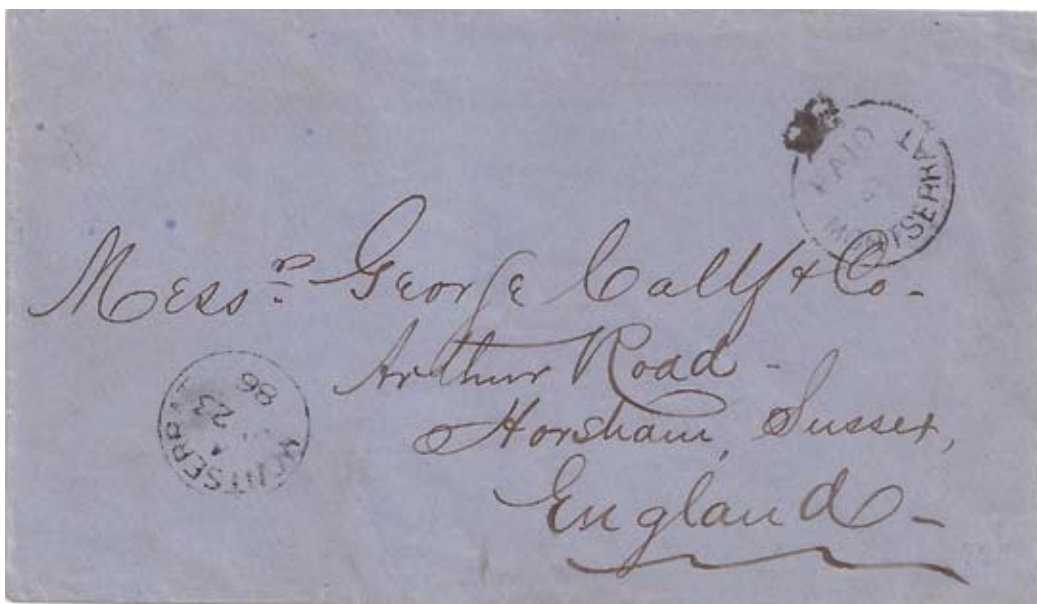 PAID
MONTSERRAT
Messrs. George Cally & Co.-
Arthur Road -
Horsham, Sussex,
England -
MONTSERRAT
23
86